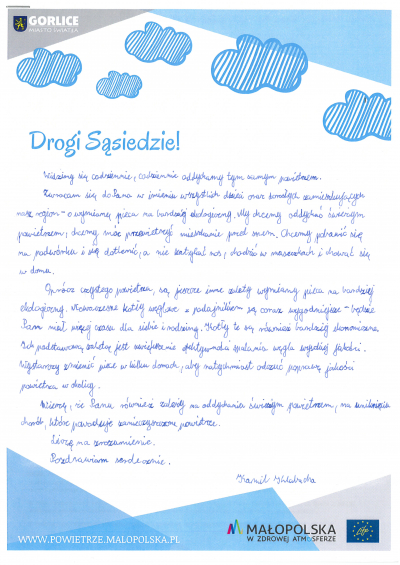 GORLICE
MIASTO ŚWIATŁA
Drogi Sąsiedzie!
Widzimy się codziennie, codziennie oddychamy tym samym powietrzem.
Zwracam się do Pana w imieniu wszystkich dzieci oraz dorosłych zamieszkujących
nasz region - o wymianę pieca na bardziej ekologiczny. My chcemy oddychać świeżym
powietrzem, chcemy móc przewietrzyć mieszkanie przed snem. Chcemy pobawić się
na podwórku i się dotlenić, a nie zatykać nos, chodzić w maseczkach i chować się
w domu.
Oprócz czystego powietrza, są jeszcze inne zalety wymiany pieca na bardziej
ekologiczny. Nowoczesne kotły węglowe z podajnikiem są coraz wygodniejsze - będzie
Pan miał więcej czasu dla siebie i rodziny. Kotły te są również bardziej ekonomiczne.
Ich podstawową zaletą jest zwiększenie efektywności spalania węgla wysokiej jakości.
Wystarczy zmienić piec w kilku domach, aby natychmiast odczuć poprawę jakości
powietrza w okolicy.
Wierzę, że Panu również zależy na oddychaniu świeższym powietrzem, na uniknięciu
chorób, które powoduje zanieczyszczone powietrze.
Liczę na zrozumienie.
Pozdrawiam serdecznie.
Kamil
WWW.POWIETRZE.MALOPOLSKA.PL
MAŁOPOLSKA
W ZDROWEJ ATMOSFERZE
life